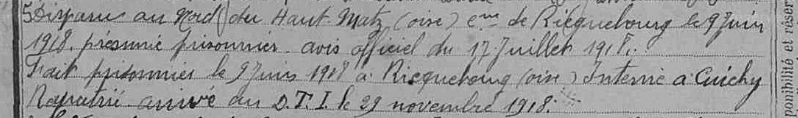 Disparu au Nord du Haut Matz (oise) cne de Ricquebourg le 9 Juin
1918. présumé prisonnier. avis officiel du 17 Juillet 1918.
Fait prisonnier le 9 Juin 1918 à Ricquebourg (oise) Interné a Cuichy
Rapatrié arrivé au D.T.I. le 29 novembre 1918.
ponibilité et réser